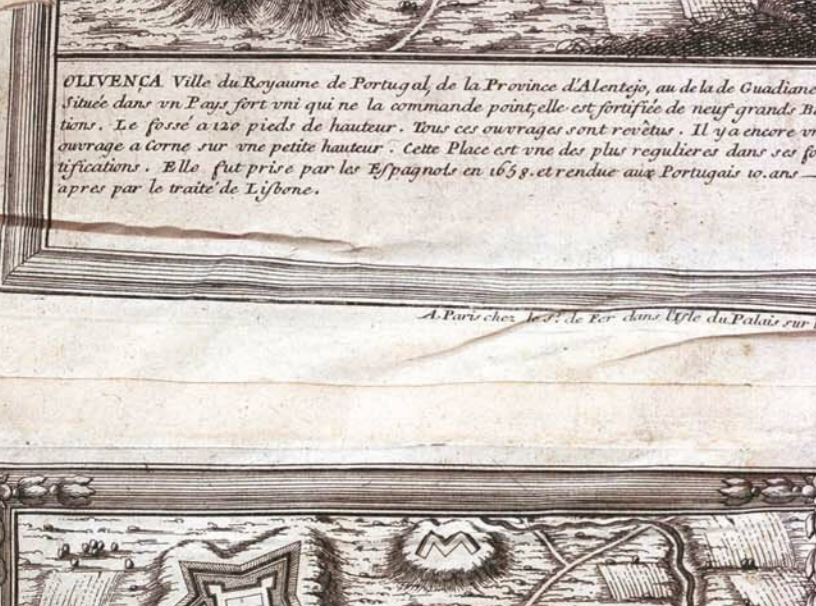 OLIVENÇA Ville du Royaume de Portugal, de la Province d'Alentejo, au de la de Guadiane
Située dans vn Pays fort vni qui ne la commande point, elle est fortifiée de neuf grands
tions. Le fossé a 120 pieds de hauteur. Tous ces ouvrages sont revêtus. Il y a encore vn
ouvrage a Corne sur vne petite hauteur. Cette Place est vne des plus regulieres dans ses fo
tifications. Elle fut prise par les Espagnols en 1658. et rendue aux Portugais 10. ans
apres par le traité de Lisbone.
A Paris chez le Sr. de Fer dans l'Isle du Palais sur